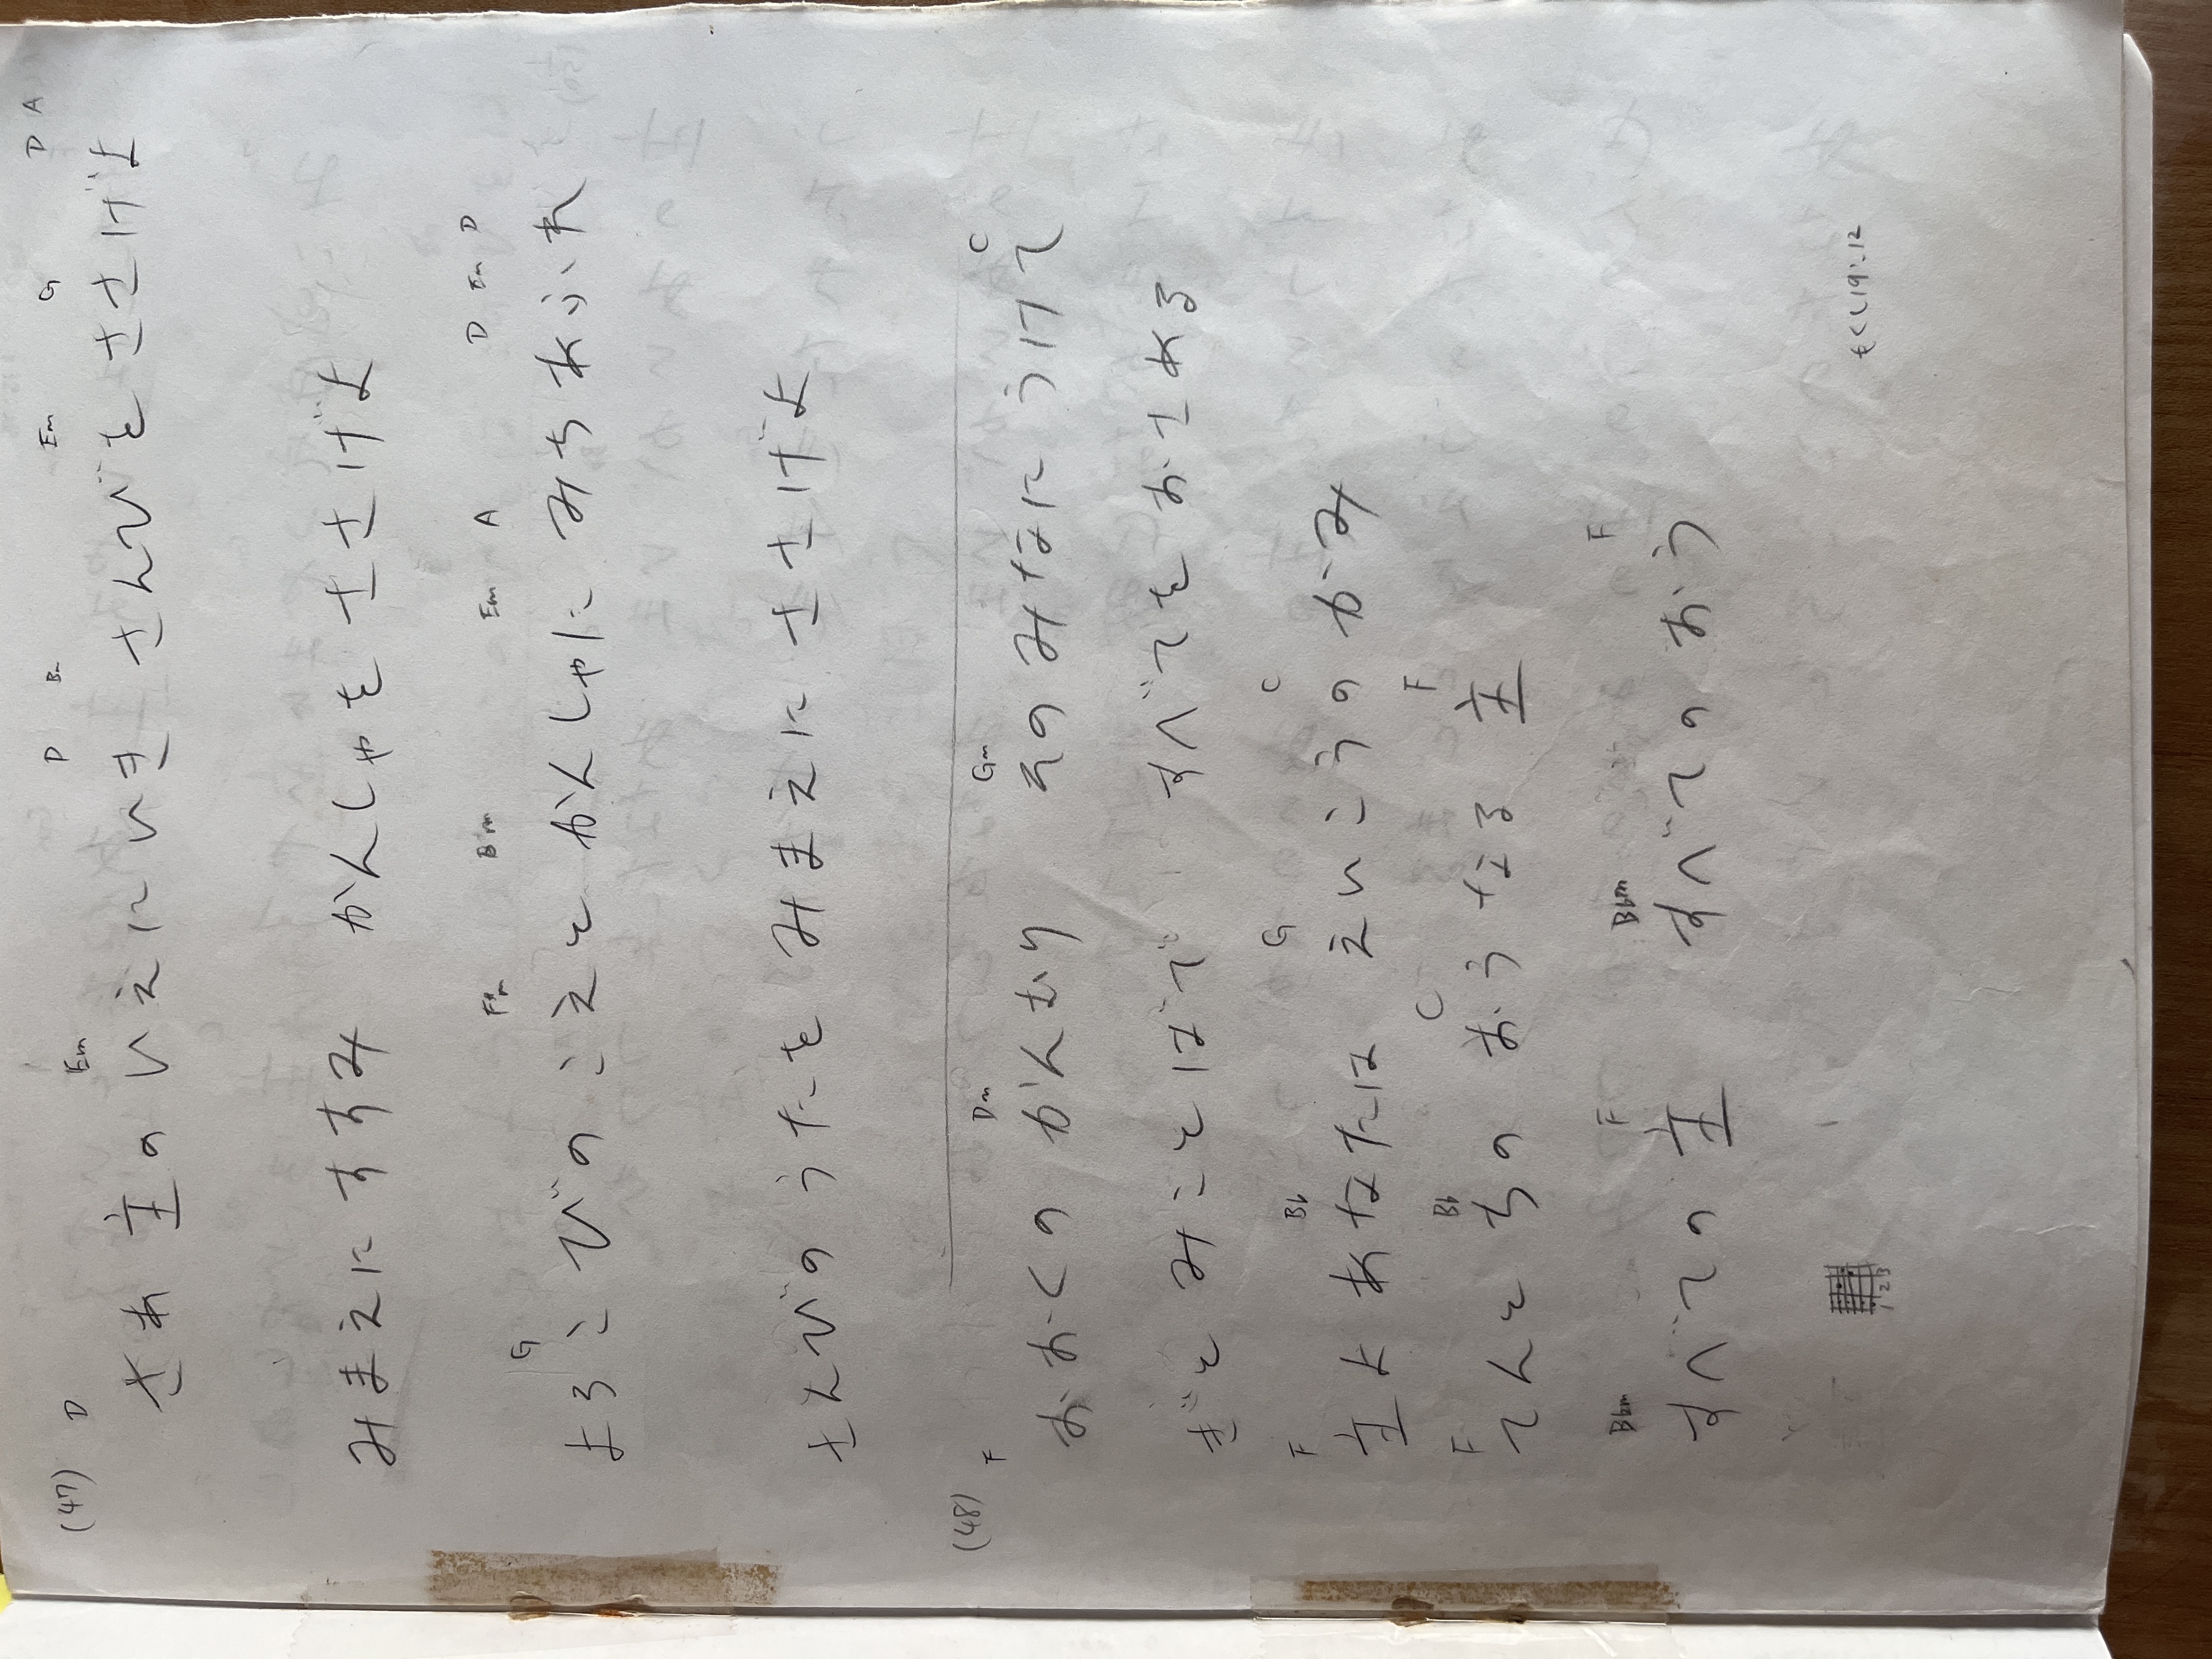 (47) D Em D Bm Em G D A
さあ 主の いえに いき さんびを ささげよ
みまえに すすみ かんしゃを ささげよ
G F#m Bm Em A D Em D
よろこびの こえと かんしゃに みち あふれ
さんびの うたを みまえに ささげよ
(48) F Dm Gm C
おおくの かんむり その みなに うけて
ぎと みことばで すべてを おさめる
F Bb G C
主よ あなたは えいこうの かみ
F Bb C F
てんと ちの おうなる 主
Bbm F Bbm F
すべての 主 すべての おう
1 2 3
もくし19:12